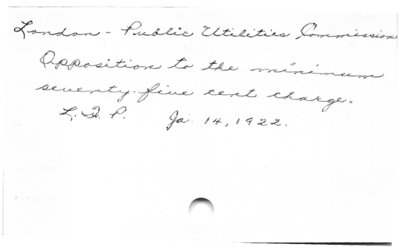 London - Public Utilities Commission
Opposition to the minimum
seventy-five cent charge.
L. F. P. Ja. 14, 1922.